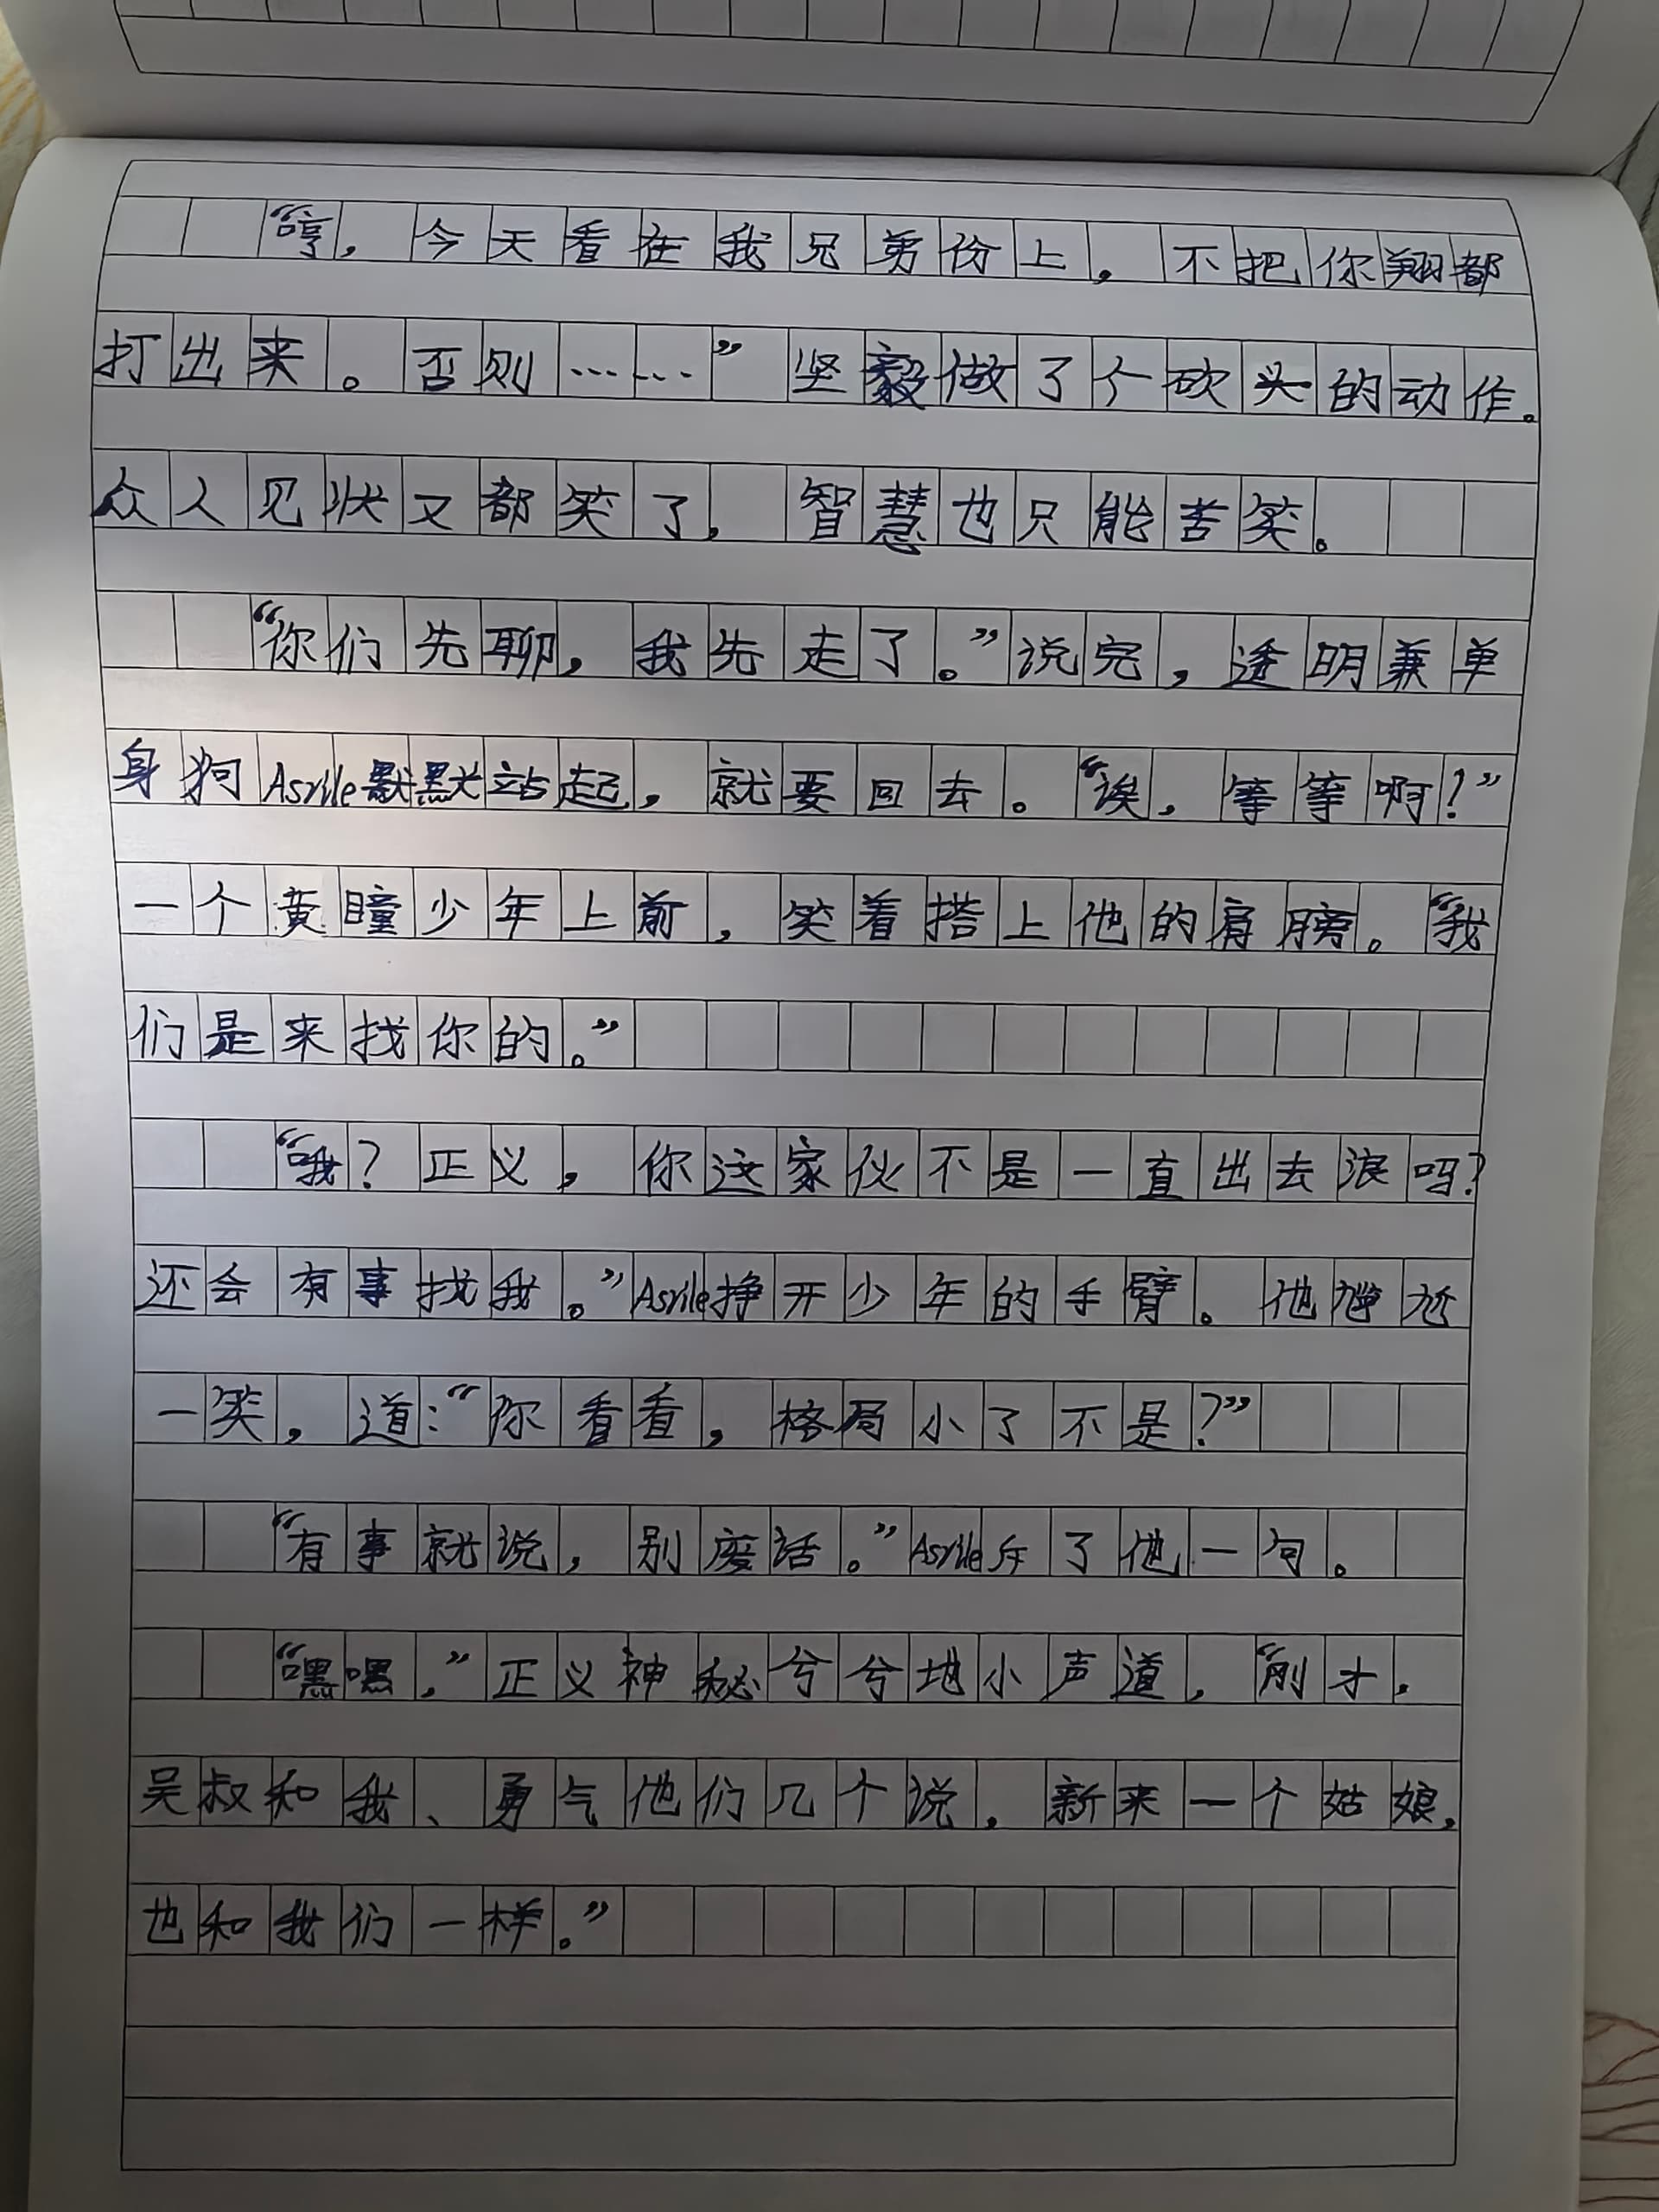 “哼，今天看在我兄弟份上，不把你翔都
打出来。否则……”坚毅做了个砍头的动作。
众人见状又都笑了，智慧也只能苦笑。
“你们先聊，我先走了。”说完，透明兼单
身狗Asrile默默站起，就要回去。“诶，等等啊？”
一个黄瞳少年上前，笑着搭上他的肩膀。“我
们是来找你的。”
“哦？正义，你这家伙不是一直出去浪吗？
还会有事找我。”Asrile挣开少年的手臂。他尴尬
一笑，道：“你看看，格局小了不是？”
“有事就说，别废话。”Asrile斥了他一句。
“嘿嘿，”正义神秘兮兮地小声道，“刚才，
吴叔和我、勇气他们几个说，新来一个姑娘，
也和我们一样。”